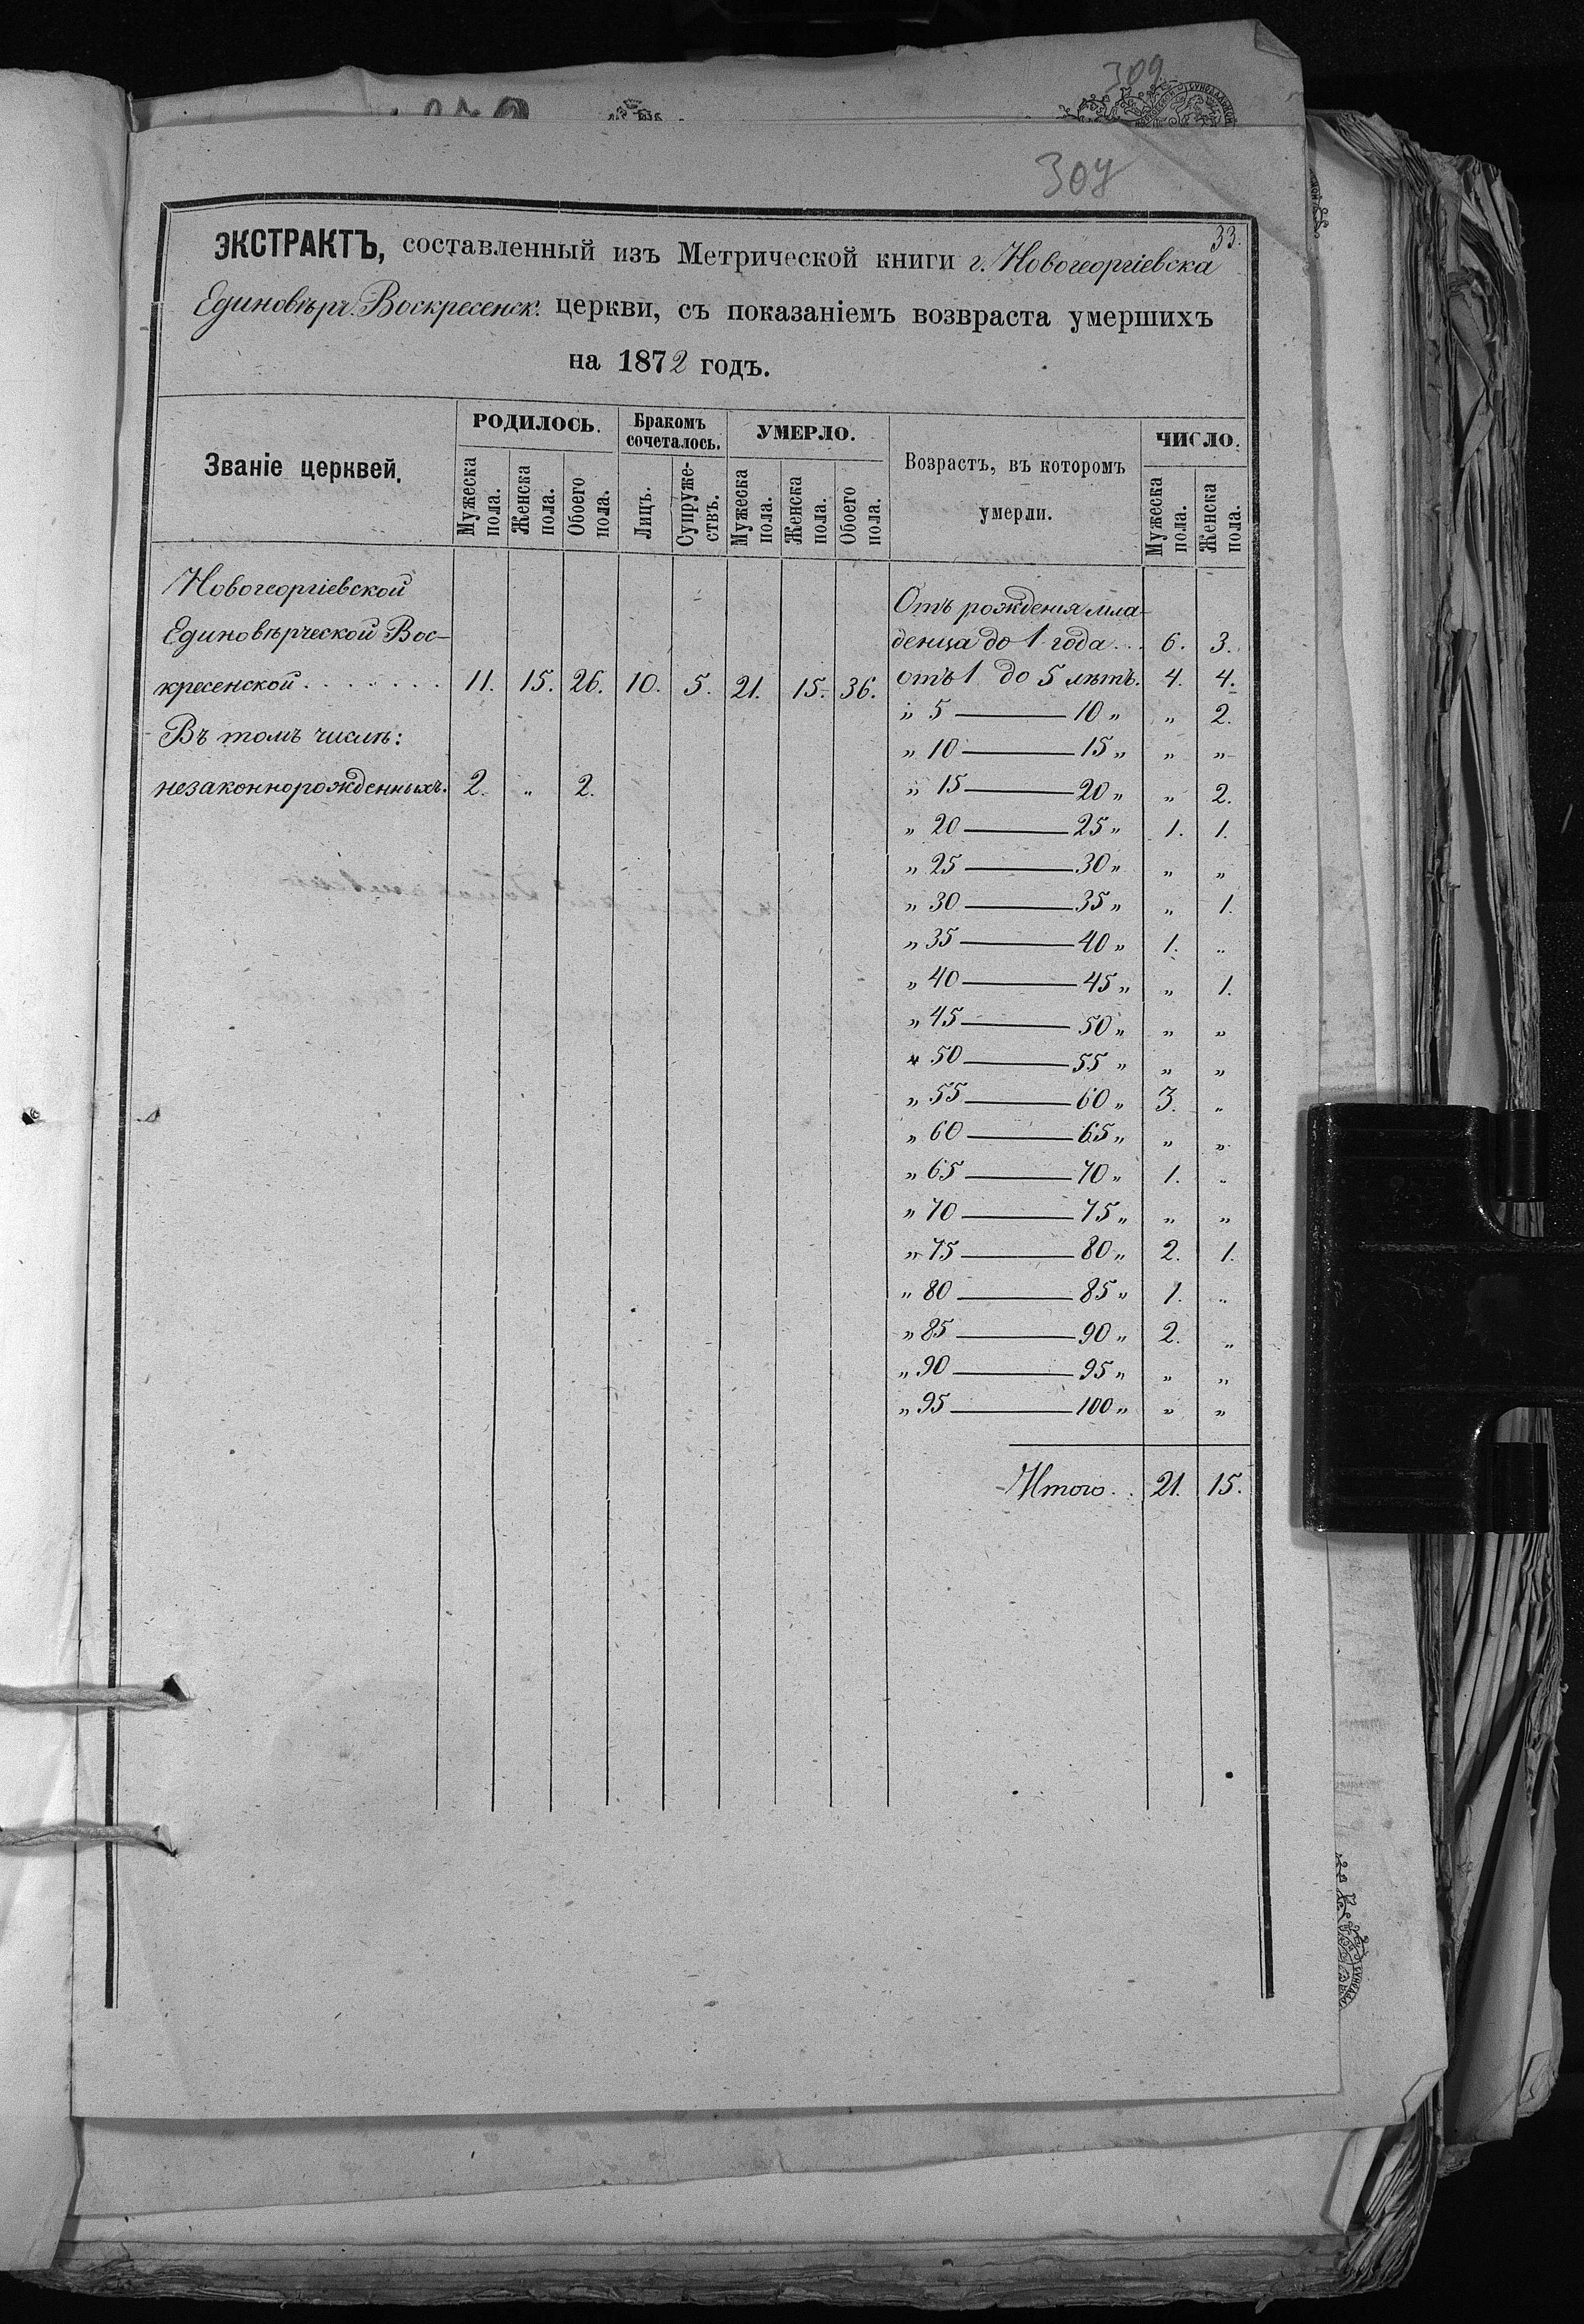 309
307
33.
ЭКСТРАКТЪ, составленный изъ Метрической книги г. Новогеоргіевска
Единовѣрч. Воскресенск. церкви, съ показаніемъ возвраста умершихъ
на 1872 годъ.
Званіе церквей. РОДИЛОСЬ. Бракомъ сочеталось. УМЕРЛО. Возрастъ, въ которомъ умерли. ЧИСЛО.
Мужеска пола. Женска пола. Обоего пола. Лицъ. Супружествъ. Мужеска пола. Женска пола. Обоего пола. Мужеска пола. Женска пола.
Новогеоргіевской
Единовѣрческой Вос-
кресенской . . . . . . . 11. 15. 26. 10. 5. 21. 15. 36.
Въ томъ числѣ:
незаконнорожденныхъ. 2. „ 2.
Отъ рожденія мла-
денца до 1 года . . . 6. 3.
отъ 1 до 5 лѣтъ. 4. 4.
„ 5 — 10 „ „ 2.
„ 10 — 15 „ „ „
„ 15 — 20 „ „ 2.
„ 20 — 25 „ 1. 1.
„ 25 — 30 „ „ „
„ 30 — 35 „ „ 1.
„ 35 — 40 „ 1. „
„ 40 — 45 „ „ 1.
„ 45 — 50 „ „ „
„ 50 — 55 „ „ „
„ 55 — 60 „ 3. „
„ 60 — 65 „ „ „
„ 65 — 70 „ 1. „
„ 70 — 75 „ „ „
„ 75 — 80 „ 2. 1.
„ 80 — 85 „ 1. „
„ 85 — 90 „ 2. „
„ 90 — 95 „ „ „
„ 95 — 100 „ „ „
Итого . . 21. 15.